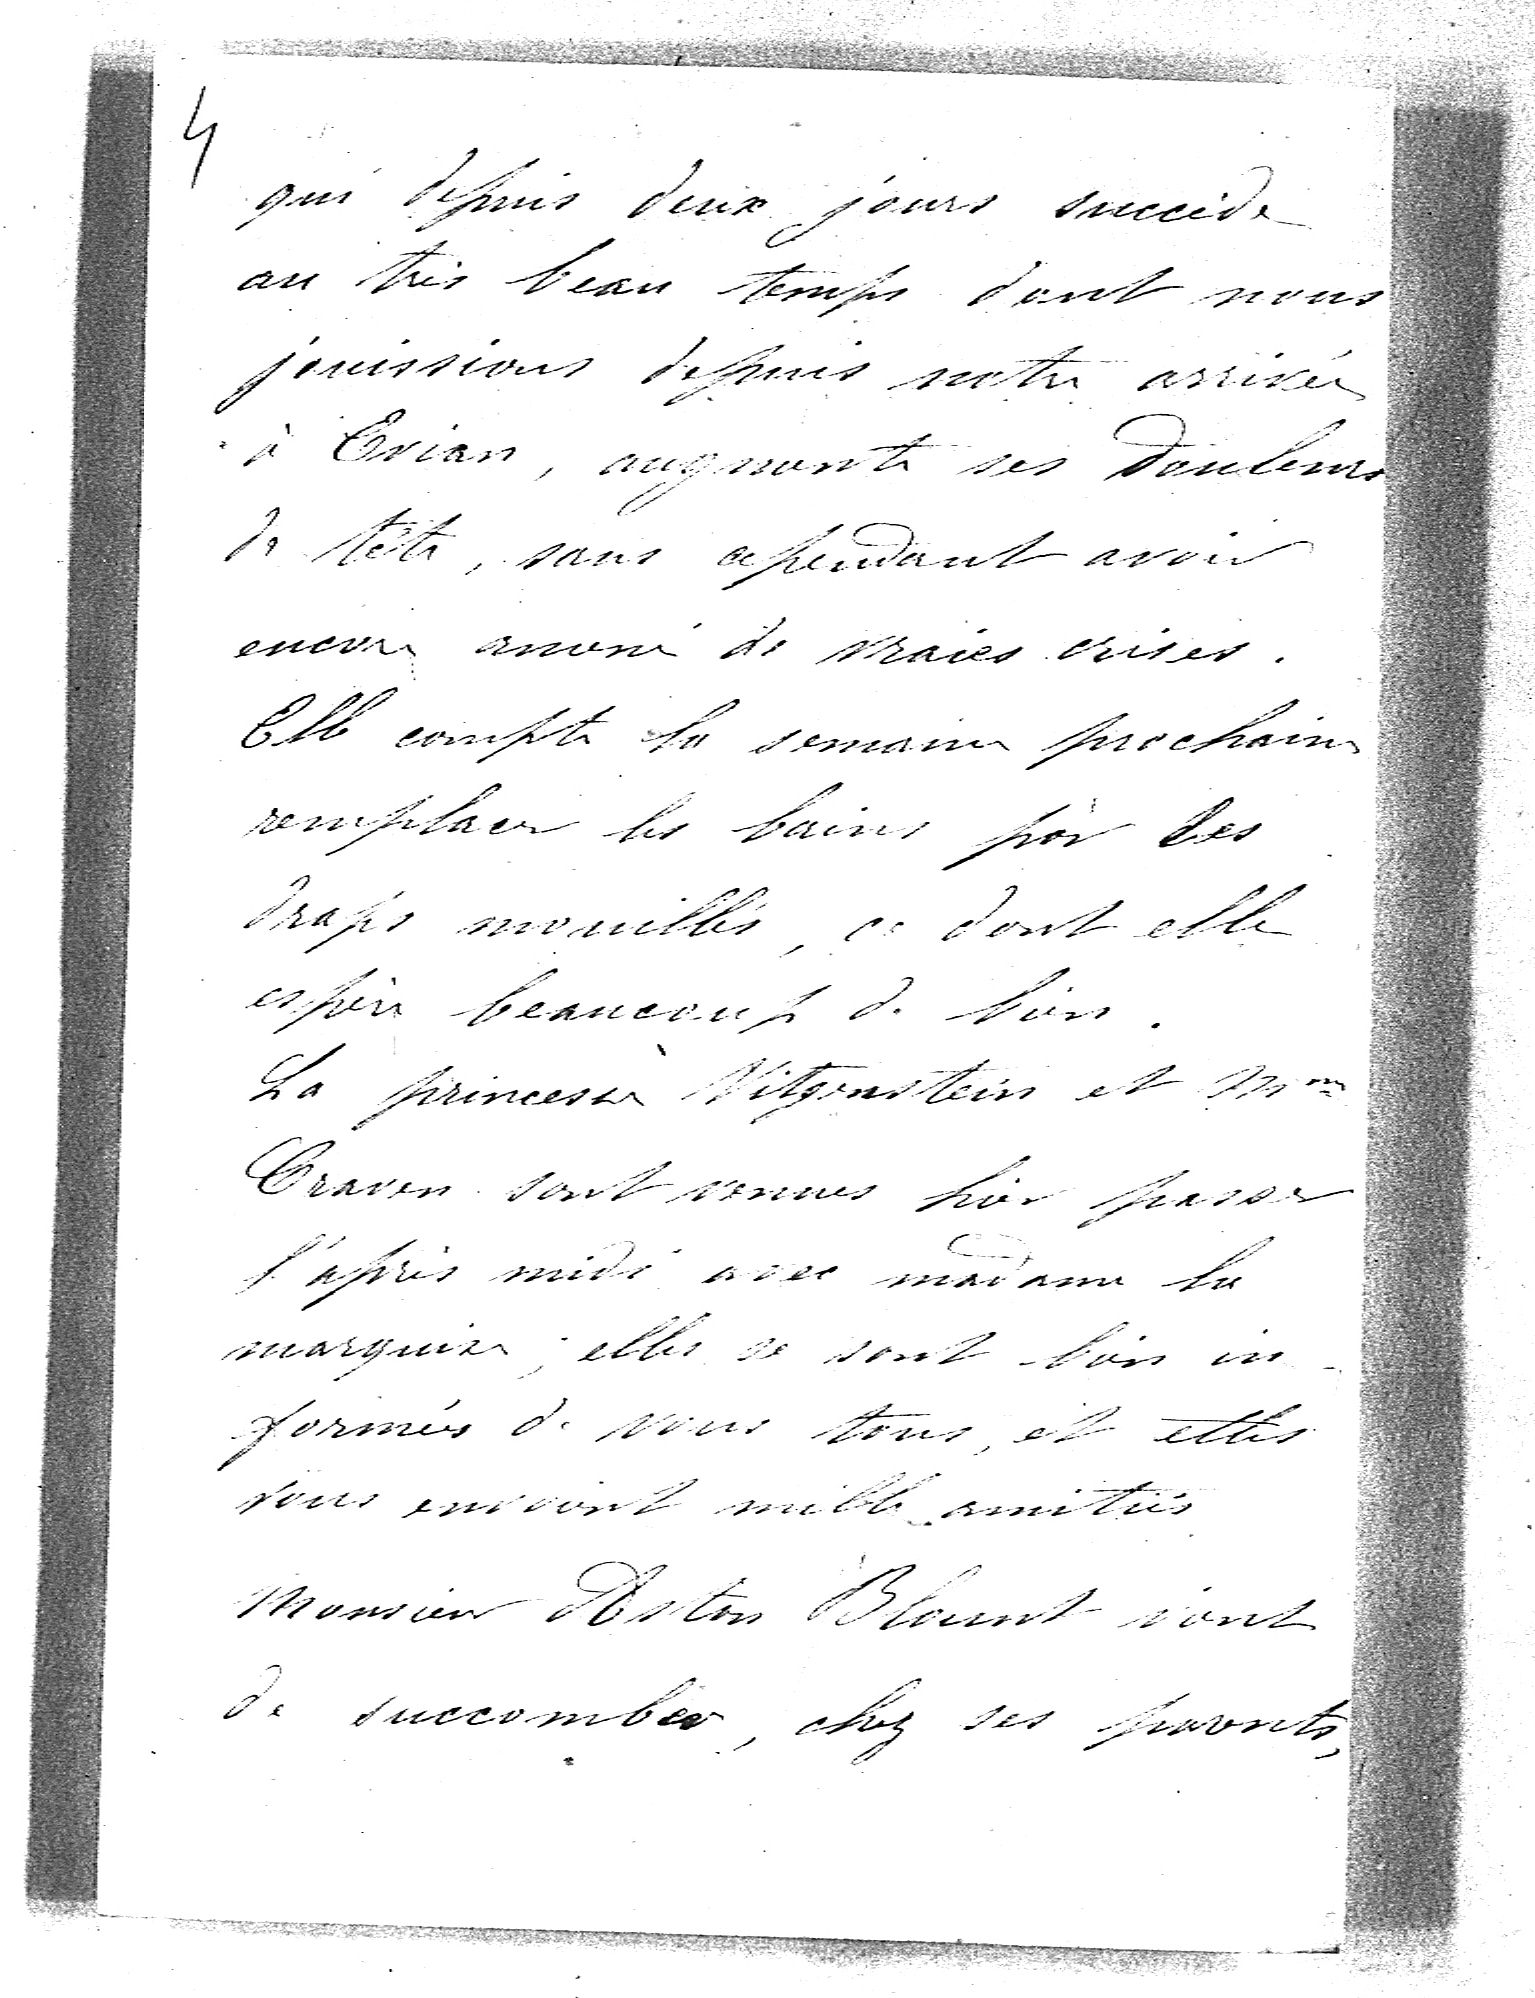 4
qui depuis deux jours succède
au très beau temps dont nous
jouissions depuis notre arrivée
à Evian, augmente ses douleurs
de tête, sans cependant avoir
encore amené de vraies crises.
Elle compte la semaine prochaine
remplacer les bains par des
draps mouillés, ce dont elle
espère beaucoup de bien.
La princesse Vitgenstein et Mme
Craven sont venues hier passer
l'après midi avec madame la
marquise; elles se sont bien in-
formées de vous tous, et elles
vous envoient mille amitiés
Monsieur Aston Blount vient
de succomber, chez ses parents,